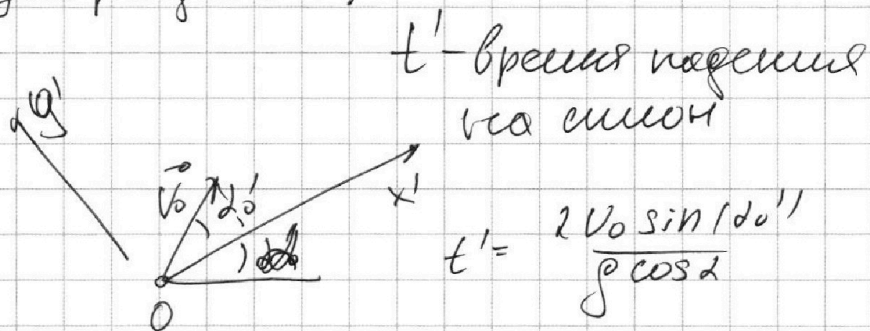 t' - время падения
на склон
y'
v⃗₀ α₀'
x'
α
O
t' = 2v₀ sin(α₀') / g cos α